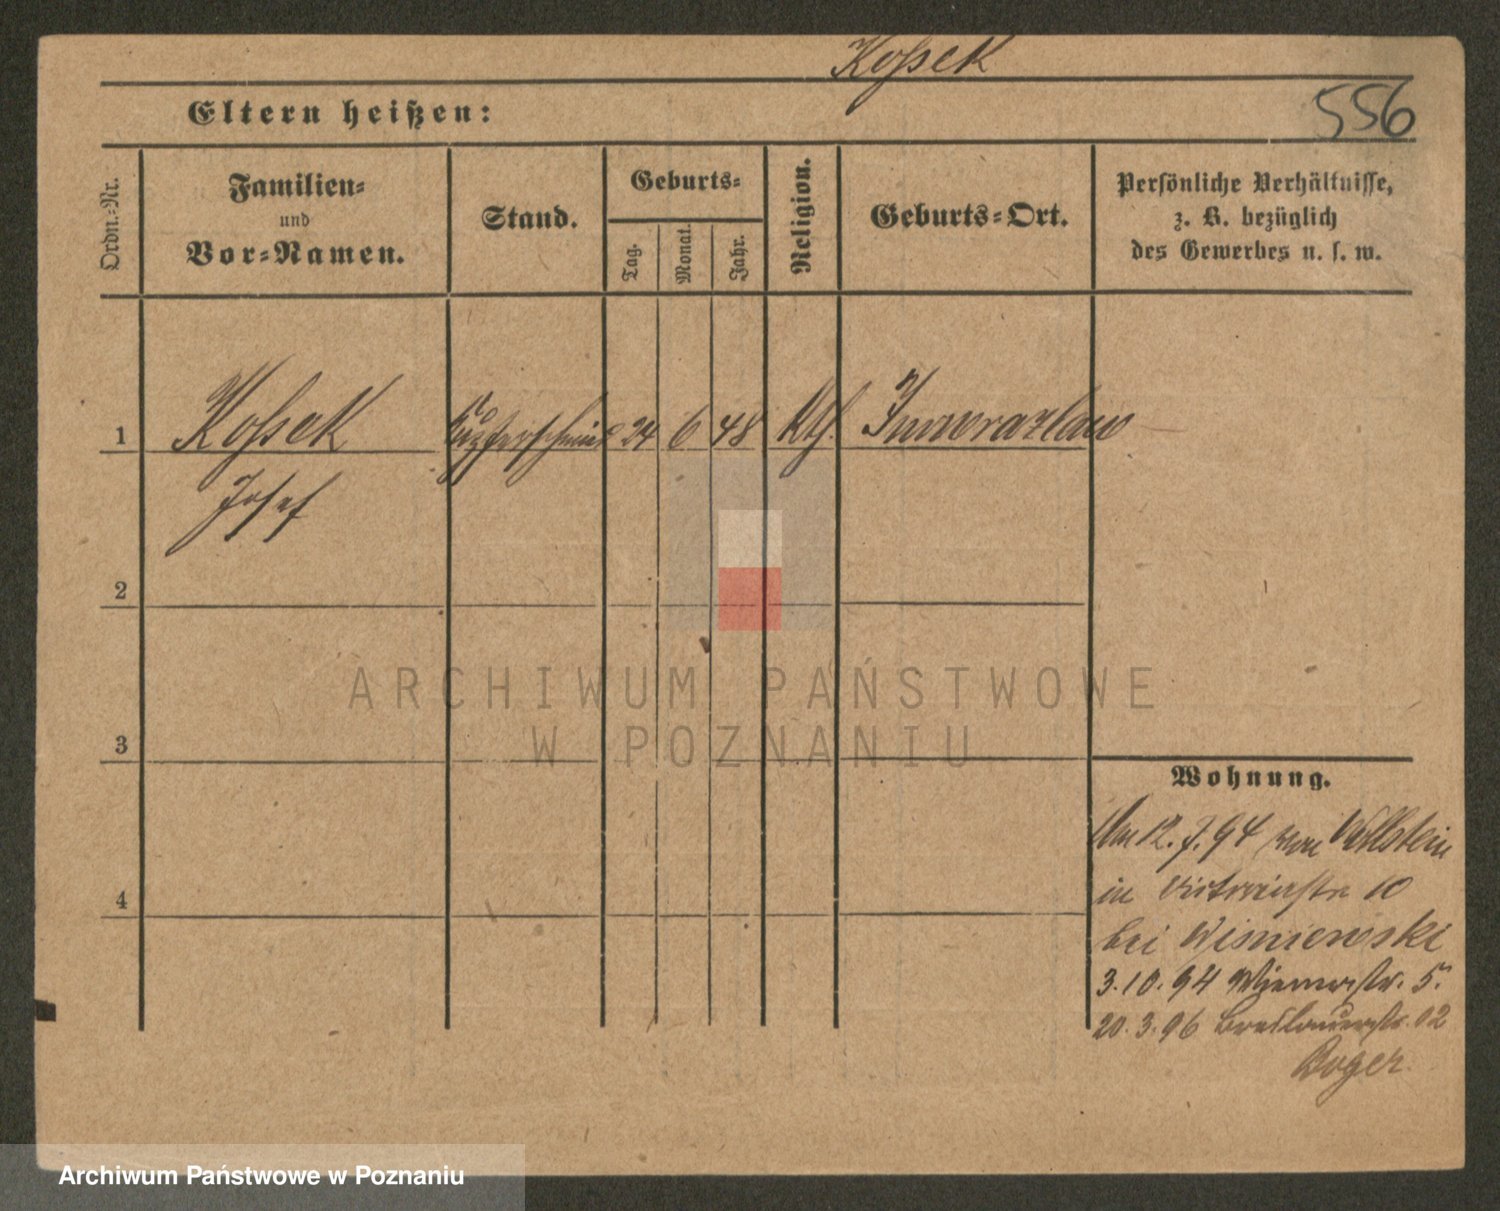 Koſsek
556
Eltern heißen:
Ordn.=Nr.
Familien=
und
Vor=Namen.
Stand.
Geburts=
Tag.
Monat.
Jahr.
Religion.
Geburts=Ort.
Persönliche Verhältnisse,
z. B. bezüglich
des Gewerbes u. s. w.
1
Koſsek
Kupferschmied
24
6
48
Kth.
Inowrazlaw
Josef
2
3
4
ARCHIWUM PAŃSTWOWE
W POZNANIU
Wohnung.
12. 7. 94 von Wollstein
in Victoriastr 10
bei Wisniewski
3. 10. 94 Wienerstr. 5.
20. 3. 96 Breslauerstr. 12
Boger
Archiwum Państwowe w Poznaniu